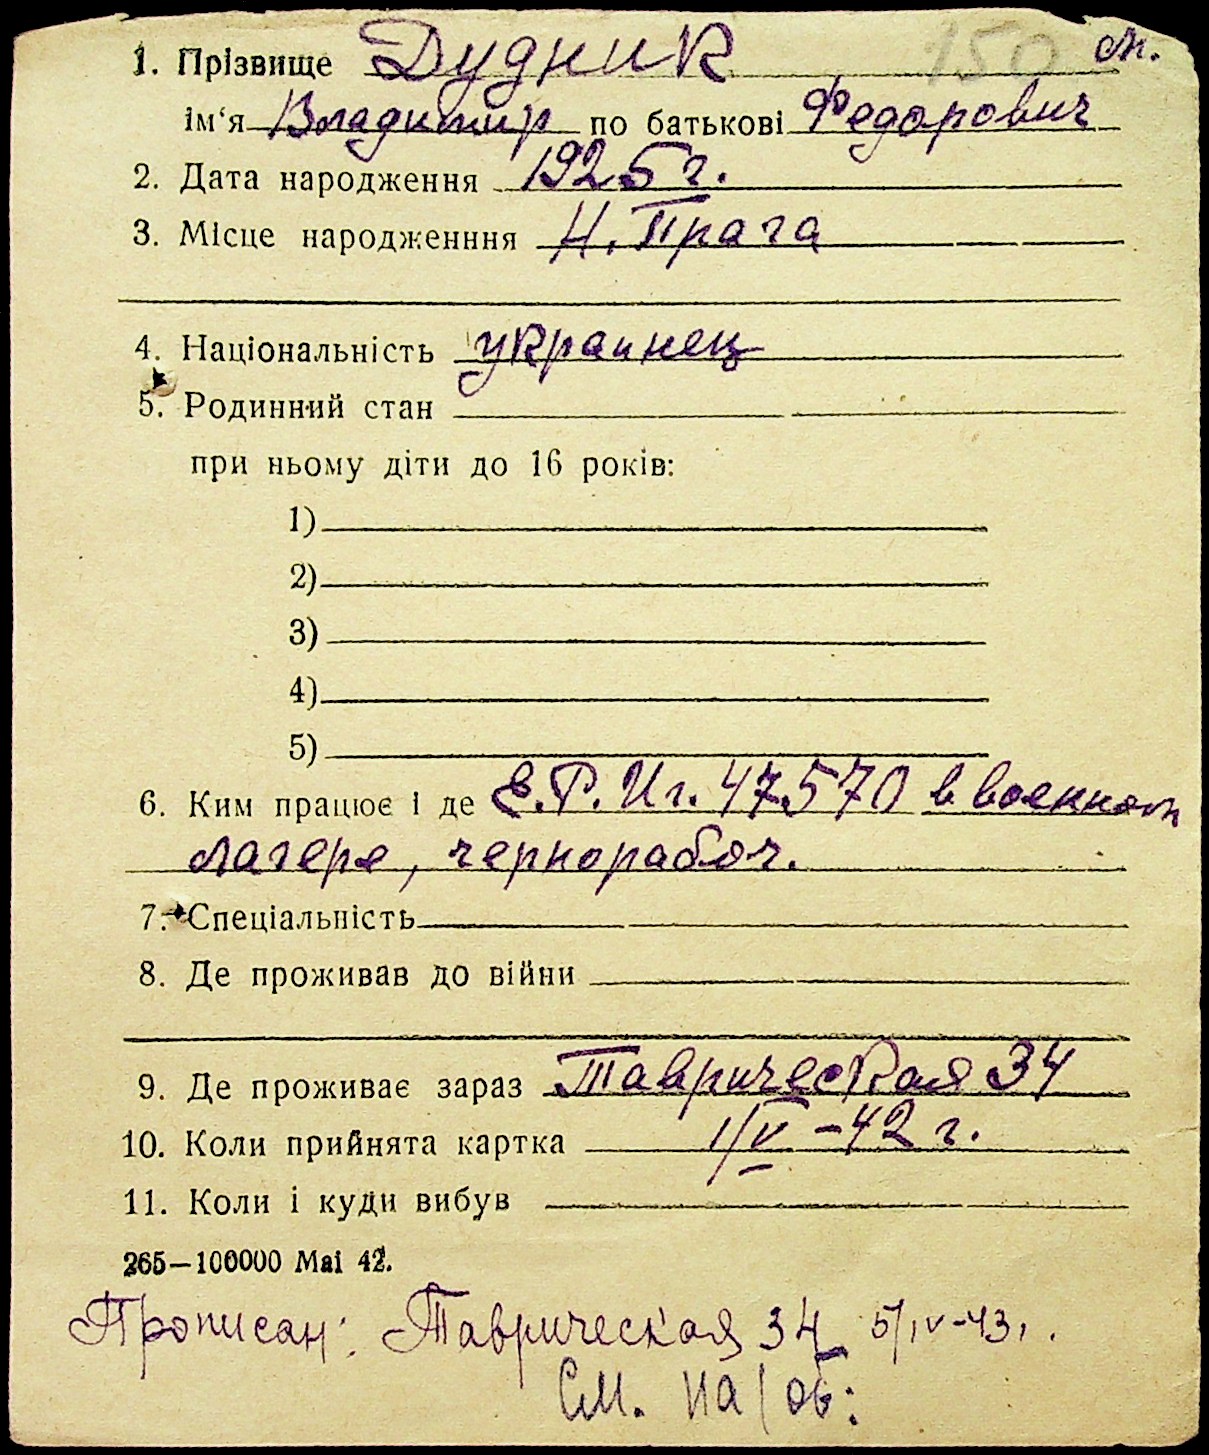 150 м.
1. Прізвище Дудник
ім‘я Владимир по батькові Федорович
2. Дата народження 1925 г.
3. Місце народженння Н. Прага
4. Національність украинец
5. Родинний стан
при ньому діти до 16 років:
1)
2)
3)
4)
5)
6. Ким працює і де Е.Р. Иг. 47570 в военном
лагере, чернорабоч.
7. Спеціальність
8. Де проживав до війни
9. Де проживає зараз Таврическая 34
10. Коли прийнята картка 1/V – 42 г.
11. Коли і куди вибув
265—100000 Mai 42.
Прописан: Таврическая 34 5/IV-43.
См. на/об: